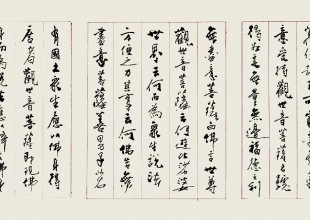 意受持觀世音菩薩名號
得如是無量無邊福德之利
無盡意菩薩白佛言世尊
觀世音菩薩云何遊此娑婆
世界云何而為眾生說法
方便之力其事云何佛告無
盡意菩薩善男子若
有國土眾生應以佛身得
度者觀世音菩薩即現佛